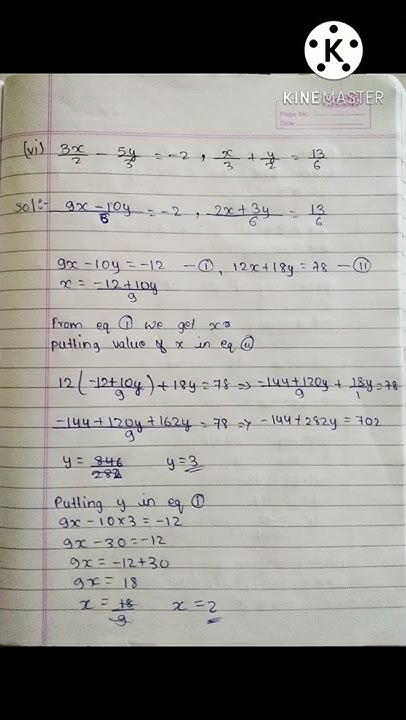 K
KINEMASTER
Page No.
Date
(vi) 3x/2 - 5y/3 = -2 , x/3 + y/2 = 13/6
Sol:- 9x - 10y/6 = -2 , 2x + 3y/6 = 13/6
9x - 10y = -12 - (I) , 12x + 18y = 78 - (II)
x = -12 + 10y/9
From eq (I) we get x
putting value of x in eq (II)
12(-12 + 10y/9) + 18y = 78 => -144 + 120y/9 + 18y/1 = 78
-144 + 120y + 162y/9 = 78 => -144 + 282y = 702
y = 846/282 y = 3
Putting y in eq (I)
9x - 10 x 3 = -12
9x - 30 = -12
9x = -12 + 30
9x = 18
x = 18/9 x = 2